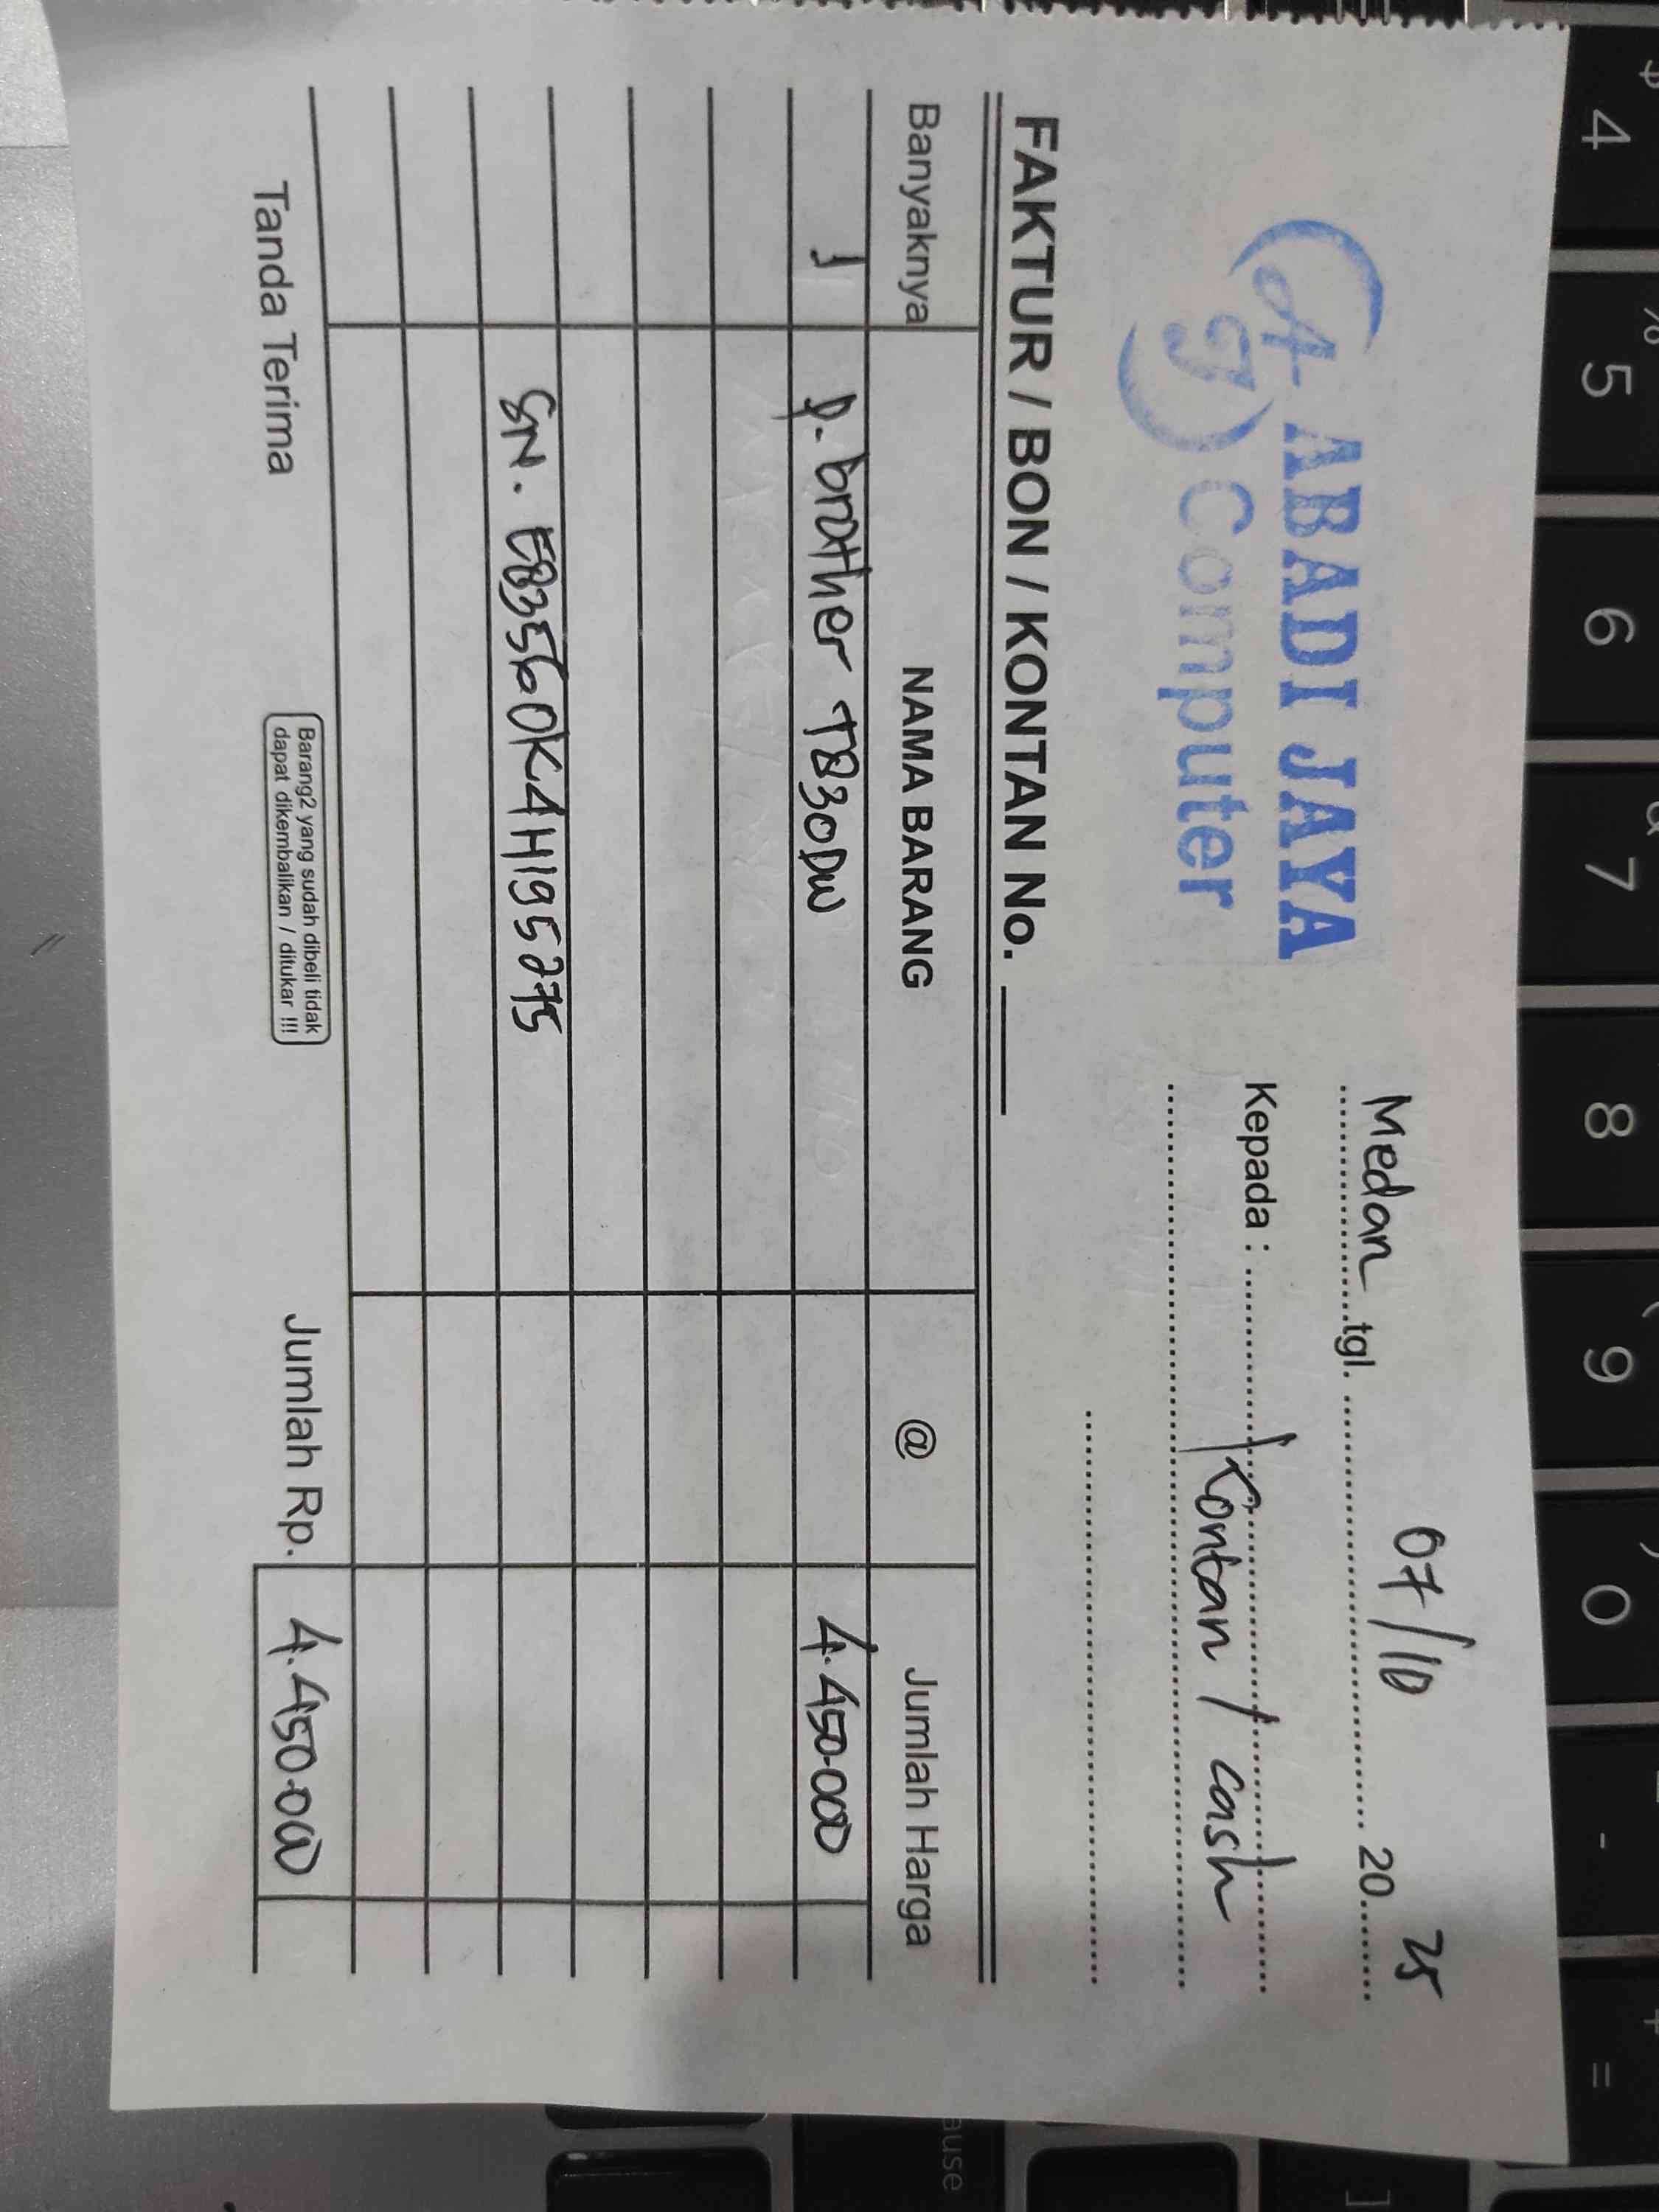 ABADI JAYA
AJ Computer
Medan tgl. 07/10 20 25
Kepada : Kontan / cash
FAKTUR / BON / KONTAN No.
Banyaknya NAMA BARANG @ Jumlah Harga
1 p. brother T830DW 4.450.000
SN. E83560K4H195275
Tanda Terima
Barang2 yang sudah dibeli tidak
dapat dikembalikan / ditukar !!!
Jumlah Rp. 4.450.000
$ 4
% 5
6
7
8
( 9
) 0
-
+ =
ause
]